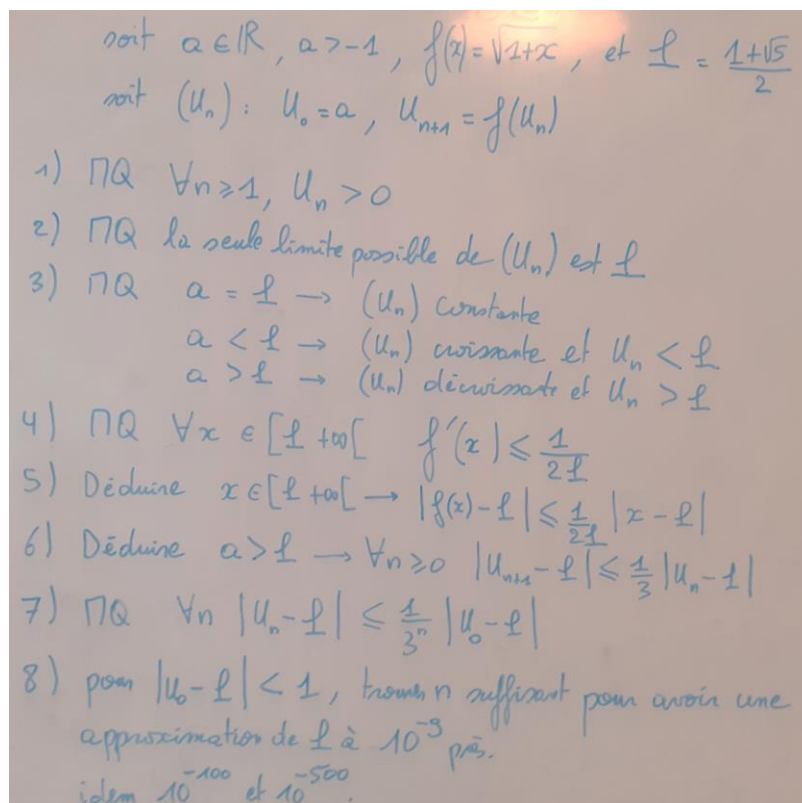 soit a ∈ ℝ, a > -1, f(x) = √(1+x), et ℓ = (1+√5)/2
soit (Uₙ) : U₀ = a, Uₙ₊₁ = f(Uₙ)
1) ΠQ ∀n ≥ 1, Uₙ > 0
2) ΠQ la seule limite possible de (Uₙ) est ℓ
3) ΠQ a = ℓ → (Uₙ) constante
a < ℓ → (Uₙ) croissante et Uₙ < ℓ
a > ℓ → (Uₙ) décroissante et Uₙ > ℓ
4) ΠQ ∀x ∈ [ℓ +∞[ f'(x) ≤ 1/(2ℓ)
5) Déduire x ∈ [ℓ +∞[ → |f(x) - ℓ| ≤ 1/(2ℓ) |x - ℓ|
6) Déduire a > ℓ → ∀n ≥ 0 |Uₙ₊₁ - ℓ| ≤ 1/3 |Uₙ - ℓ|
7) ΠQ ∀n |Uₙ - ℓ| ≤ 1/3ⁿ |U₀ - ℓ|
8) pour |U₀ - ℓ| < 1, trouver n suffisant pour avoir une
approximation de ℓ à 10⁻⁹ près.
idem 10⁻¹⁰⁰ et 10⁻⁵⁰⁰.